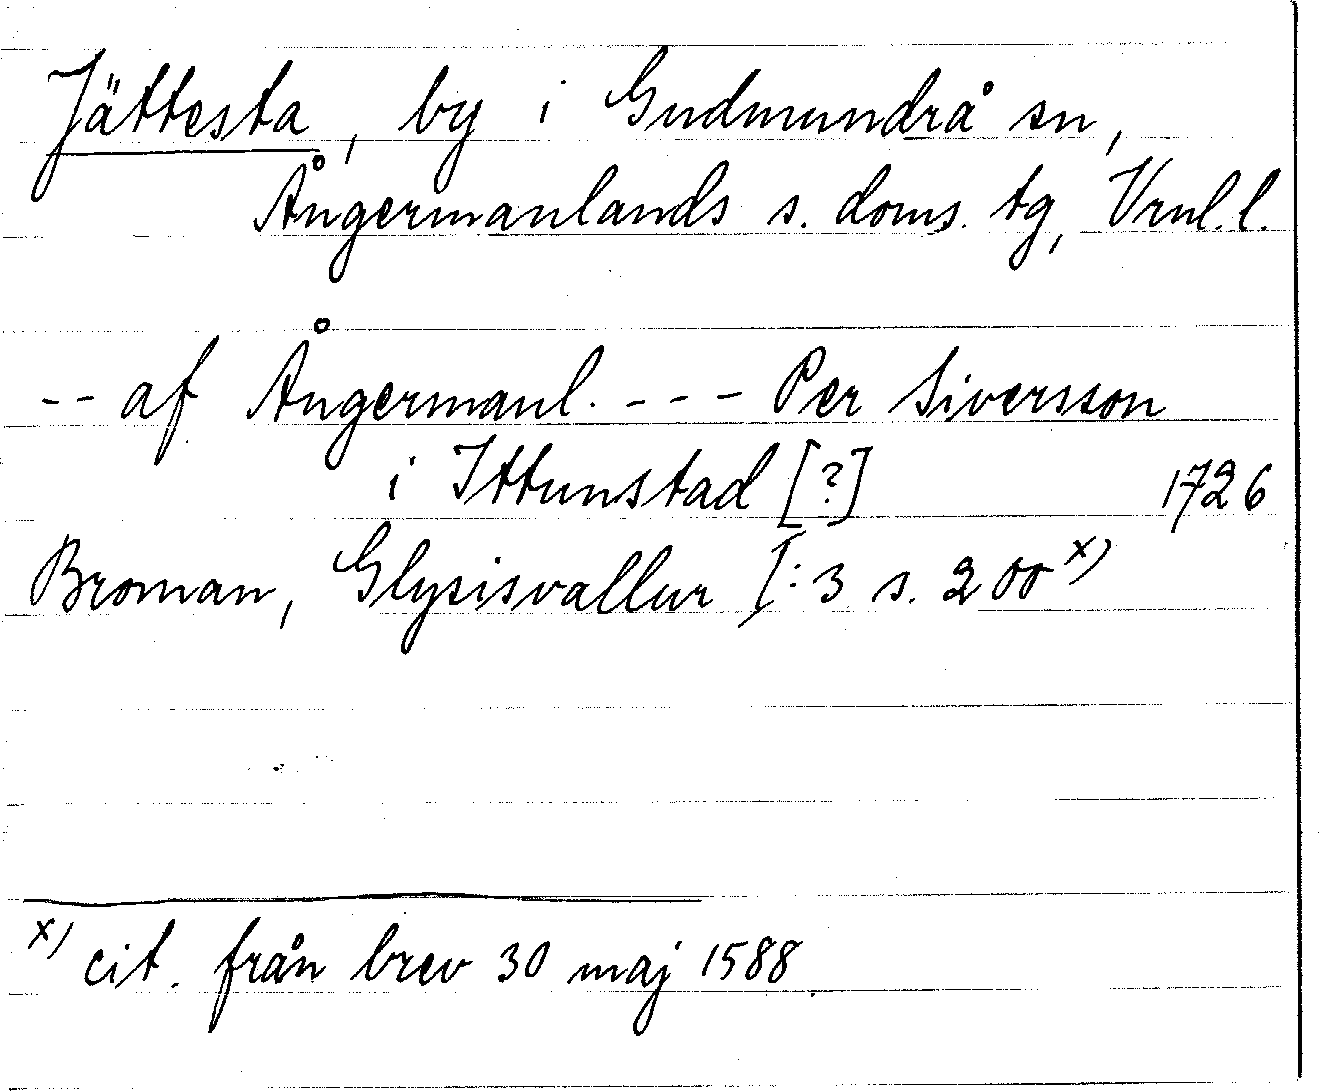 Jättesta, by i Gudmundrå sn,
Ångermanlands s. doms. tg, Vrnl. l.
-- af Ångermanl. - - - Per Siversson
i Ittunstad [?] 1726
Broman, Glysisvallur I: 3 s. 200 x)
x) cit. från brev 30 maj 1588.